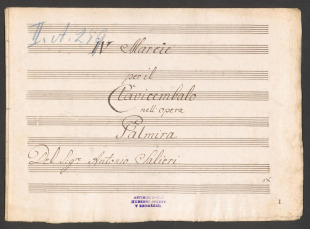 II. A. 259
IV Marcie
per il
Clavicembalo
nell' opera
Palmira
Del Sigr Antonio Salieri
1